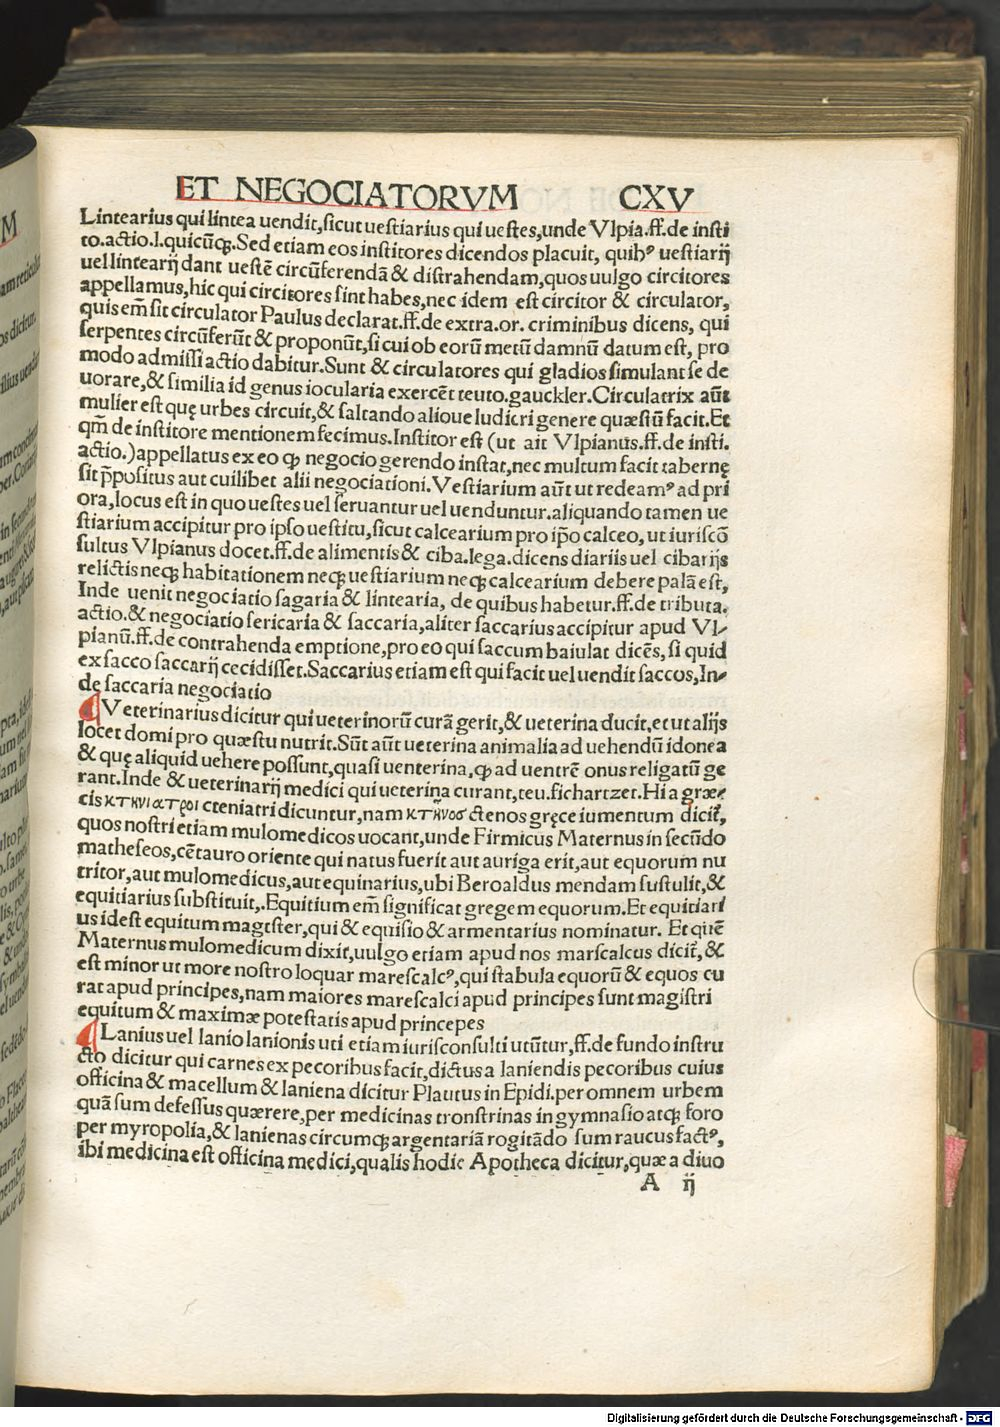 ET NEGOCIATORVM CXV
Lintearius qui lintea uendit, sicut uestiarius qui uestes, unde Vlpia. ff. de insti
to. actio. l. quicūq;. Sed etiam eos institores dicendos placuit, quibꝰ uestiarij
uel lintearij dant uestē circūferendā & distrahendam, quos uulgo circitores
appellamus, hic qui circitores sint habes, nec idem est circitor & circulator,
quis em̄ sit circulator Paulus declarat. ff. de extra. or. criminibus dicens, qui
serpentes circūferūt & proponūt, si cui ob eorū metū damnū datum est, pro
modo admissi actio dabitur. Sunt & circulatores qui gladios simulant se de
uorare, & similia id genus iocularia exercēt teuto. gauckler. Circulatrix aūt
mulier est quę urbes circuit, & saltando alioue ludicri genere quæstū facit. Et
qm̄ de institore mentionem fecimus. Institor est (ut ait Vlpianus. ff. de insti.
actio.) appellatus ex eo ꝙ negocio gerendo instat, nec multum facit tabernę
sit p̄positus aut cuilibet alii negociationi. Vestiarium aūt ut redeamꝰ ad pri
ora, locus est in quo uestes uel seruantur uel uenduntur. aliquando tamen ue
stiarium accipitur pro ipso uestitu, sicut calcearium pro ip̄o calceo, ut iuriscō
sultus Vlpianus docet. ff. de alimentis & ciba. lega. dicens diariis uel cibarijs
relictis neq; habitationem neq; uestiarium neq; calcearium debere palā est,
Inde uenit negociatio sagaria & lintearia, de quibus habetur. ff. de tributa.
actio. & negociatio sericaria & saccaria, aliter saccarius accipitur apud Vl-
pianū. ff. de contrahenda emptione, pro eo qui saccum baiulat dicēs, si quid
ex sacco saccarij cecidisset. Saccarius etiam est qui facit uel uendit saccos, In-
de saccaria negociatio
¶ Veterinarius dicitur qui ueterinorū curā gerit, & ueterina ducit, et ut alijs
locet domi pro quæstu nutrit. Sūt aūt ueterina animalia ad uehendū idonea
& quę aliquid uehere possunt, quasi uenterina, ꝙ ad uentrē onus religatū ge
rant. Inde & ueterinarij medici qui ueterina curant, teu. fichartzet. Hi a græ-
cis κτηνιατροι cteniatri dicuntur, nam κτῆνοσ ctenos gręce iumentum dicit̄,
quos nostri etiam mulomedicos uocant, unde Firmicus Maternus in secūdo
matheseos, cētauro oriente qui natus fuerit aut auriga erit, aut equorum nu
tritor, aut mulomedicus, aut equinarius, ubi Beroaldus mendam sustulit, &
equitiarius substituit,. Equitium em̄ significat gregem equorum. Et equitiari
us idest equitum magister, qui & equisio & armentarius nominatur. Et quē
Maternus mulomedicum dixit, uulgo etiam apud nos marscalcus dicit̄, &
est minor ut more nostro loquar marescalcꝰ, qui stabula equorū & equos cu
rat apud principes, nam maiores marescalci apud principes sunt magistri
equitum & maximæ potestatis apud princepes
¶ Lanius uel lanio lanionis uti etiam iurisconsulti utūtur, ff. de fundo instru
cto dicitur qui carnes ex pecoribus facit, dictus a laniendis pecoribus cuius
officina & macellum & laniena dicitur Plautus in Epidi. per omnem urbem
quā sum defessus quærere, per medicinas tronstrinas in gymnasio atq; foro
per myropolia, & lanienas circumq; argentariā rogitādo sum raucus factꝰ,
ibi medicina est officina medici, qualis hodie Apotheca dicitur, quæ a diuo
A ij
Digitalisierung gefördert durch die Deutsche Forschungsgemeinschaft - DFG